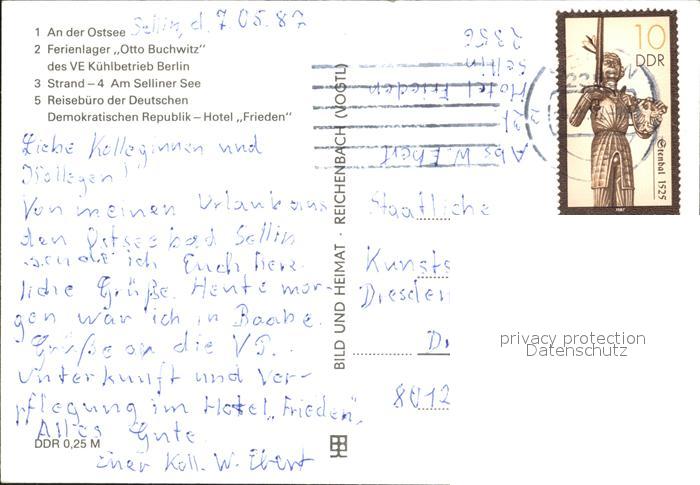 1 An der Ostsee
2 Ferienlager „Otto Buchwitz"
des VE Kühlbetrieb Berlin
3 Strand – 4 Am Selliner See
5 Reisebüro der Deutschen
Demokratischen Republik – Hotel „Frieden"
Sellin, d. 7.05.87
Liebe Kolleginnen und
Kollegen!
Von meinen Urlaub aus
den Ostseebad Sellin
sende ich Euch herz-
liche Grüße. Heute mor-
gen war ich in Baabe.
Grüße an die VP.
Unterkunft und Ver-
pflegung im Hotel „Frieden",
Alles Gute
Euer Koll. W. Ebert
DDR 0,25 M
BILD UND HEIMAT · REICHENBACH (VOGTL)
Abs. W. Ebert
Hotel Frieden
Sellin
2356
10
DDR
Stendal 1525
1987
Staatliche
Kunsts
Dresden
D
8012
privacy protection
Datenschutz